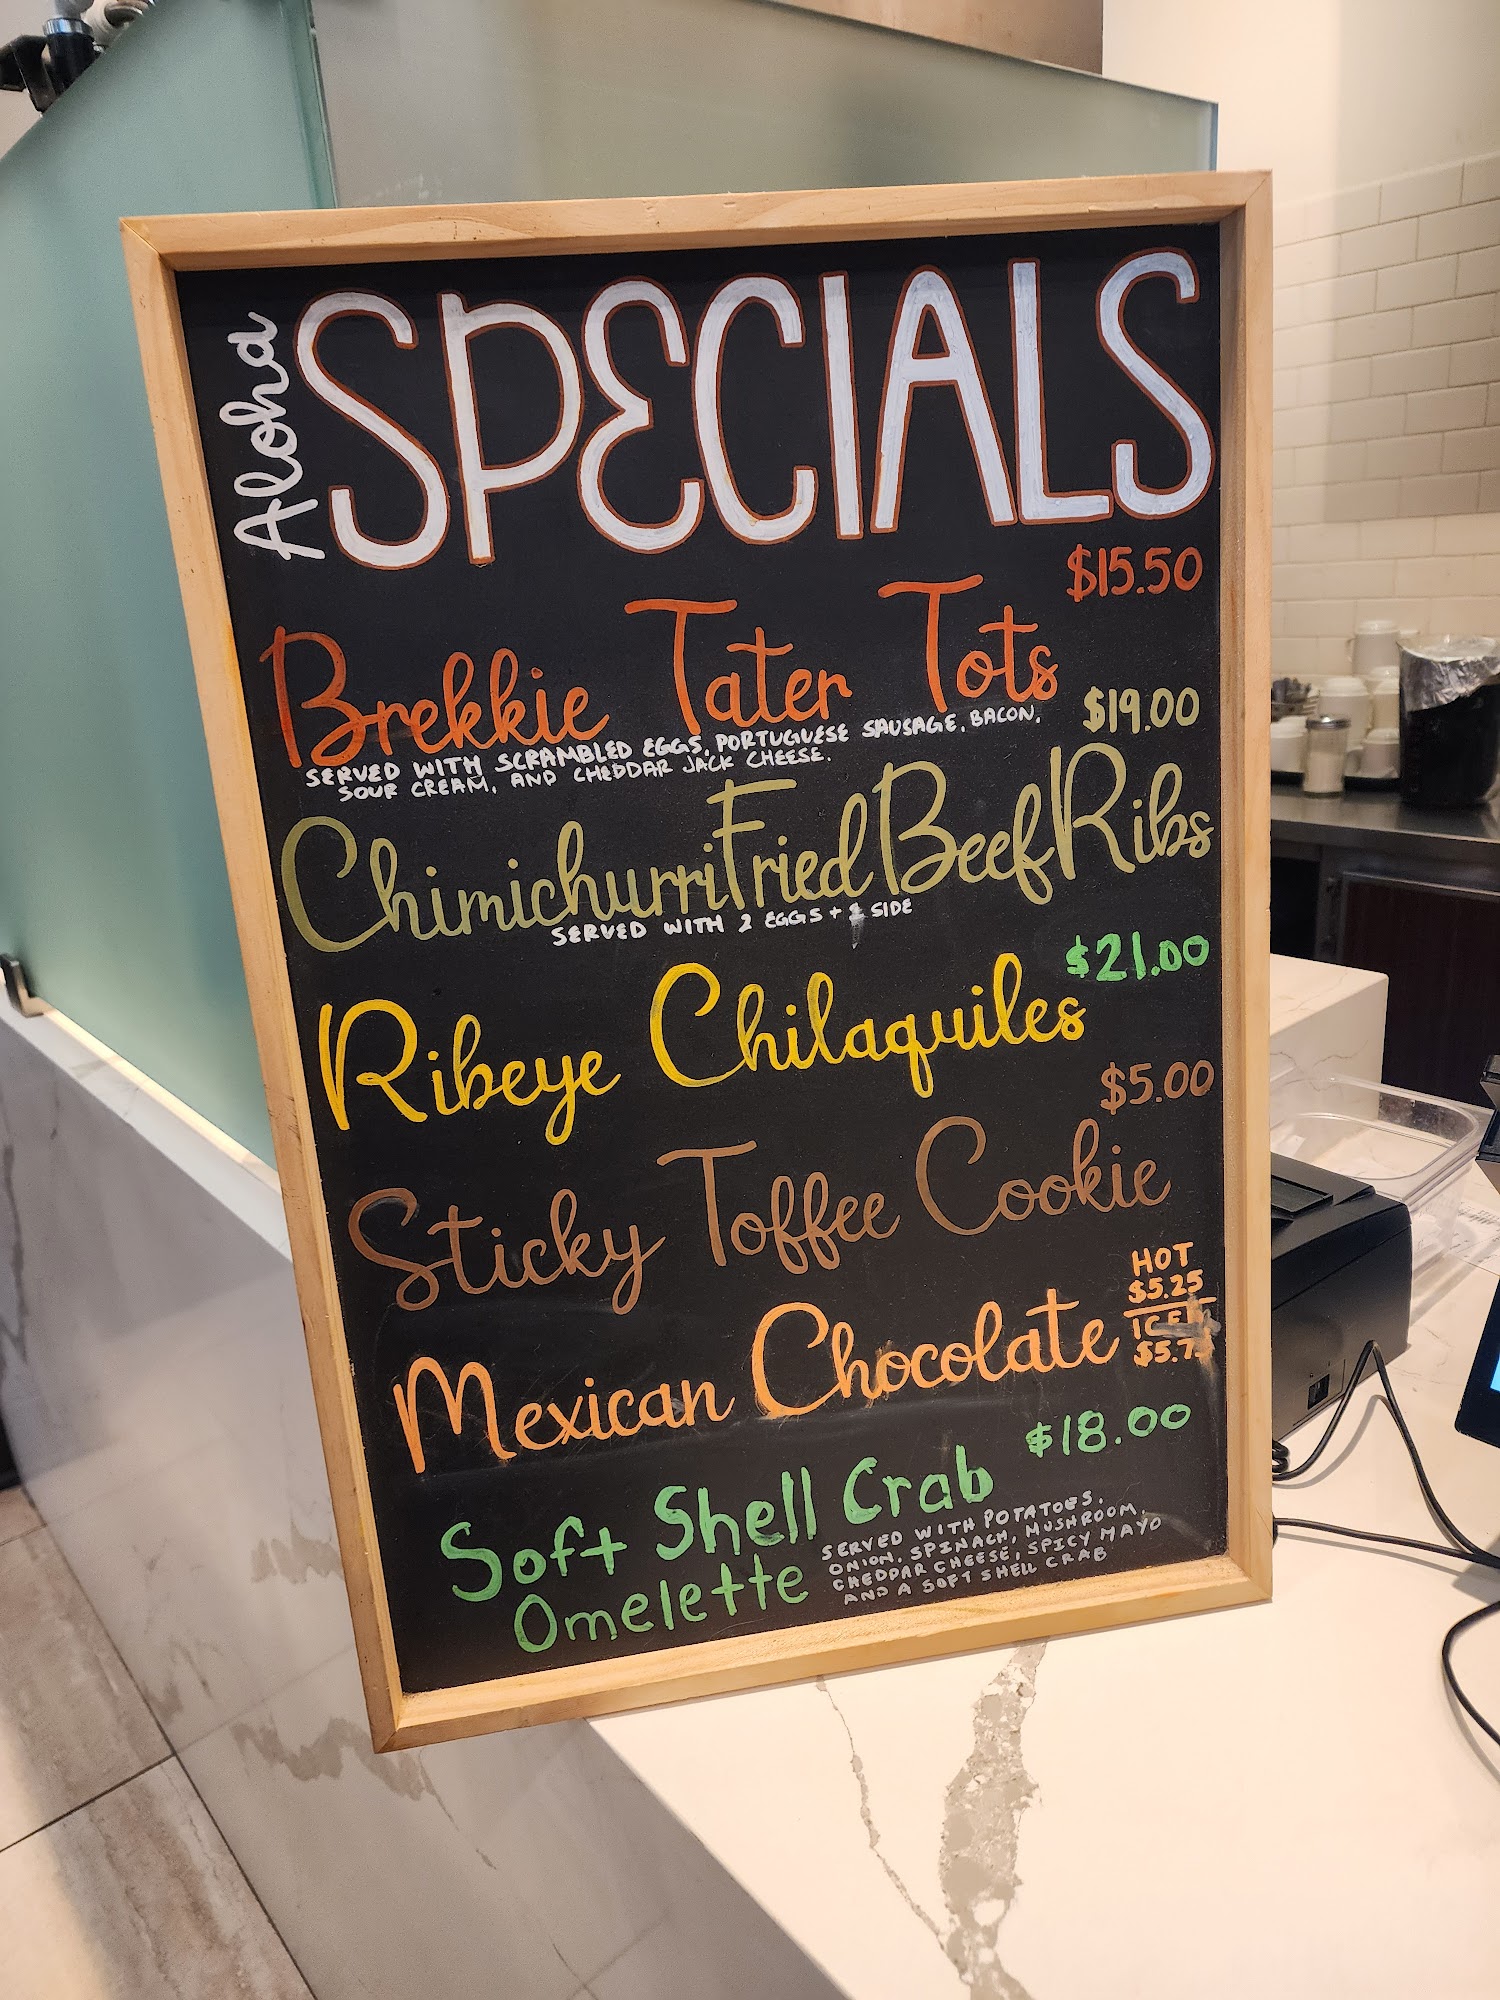 Aloha SPECIALS
$15.50
Brekkie Tater Tots
SERVED WITH SCRAMBLED EGGS, PORTUGUESE SAUSAGE, BACON,
SOUR CREAM, AND CHEDDAR JACK CHEESE.
$19.00
Chimichurri Fried Beef Ribs
SERVED WITH 2 EGGS + 1 SIDE
$21.00
Ribeye Chilaquiles
$5.00
Sticky Toffee Cookie
HOT
$5.25
ICED
Mexican Chocolate
$18.00
Soft Shell Crab
Omelette
SERVED WITH POTATOES,
ONION, SPINACH, MUSHROOM,
CHEDDAR CHEESE, SPICY MAYO
AND A SOFT SHELL CRAB